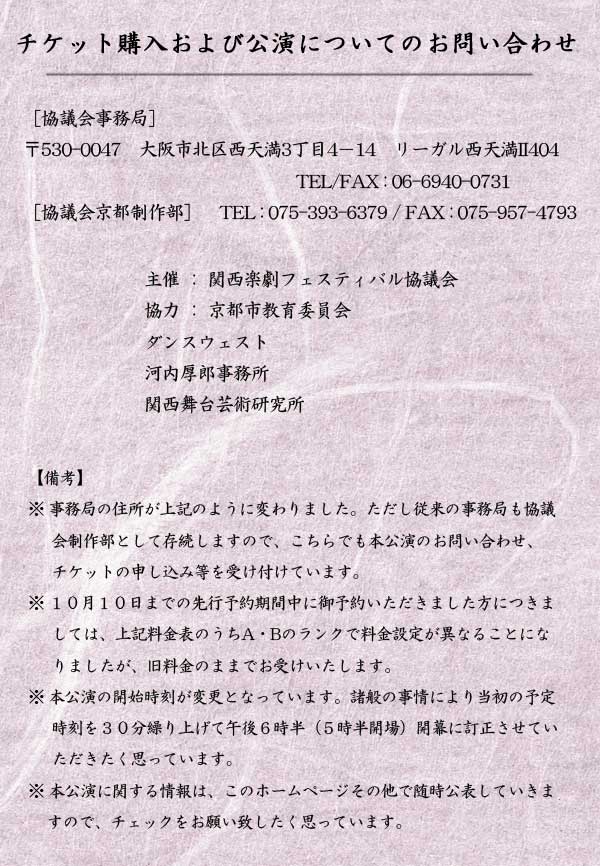 チケット購入および公演についてのお問い合わせ
［協議会事務局］
〒530-0047　大阪市北区西天満3丁目4－14　リーガル西天満Ⅱ404
TEL/FAX：06-6940-0731
［協議会京都制作部］　TEL：075-393-6379 / FAX：075-957-4793
主催 ： 関西楽劇フェスティバル協議会
協力 ： 京都市教育委員会
ダンスウェスト
河内厚郎事務所
関西舞台芸術研究所
【備考】
※ 事務局の住所が上記のように変わりました。ただし従来の事務局も協議
会制作部として存続しますので、こちらでも本公演のお問い合わせ、
チケットの申し込み等を受け付けています。
※ １０月１０日までの先行予約期間中に御予約いただきました方につきま
しては、上記料金表のうちA・Bのランクで料金設定が異なることにな
りましたが、旧料金のままでお受けいたします。
※ 本公演の開始時刻が変更となっています。諸般の事情により当初の予定
時刻を３０分繰り上げて午後６時半（５時半開場）開幕に訂正させてい
ただきたく思っています。
※ 本公演に関する情報は、このホームページその他で随時公表していきま
すので、チェックをお願い致したく思っています。